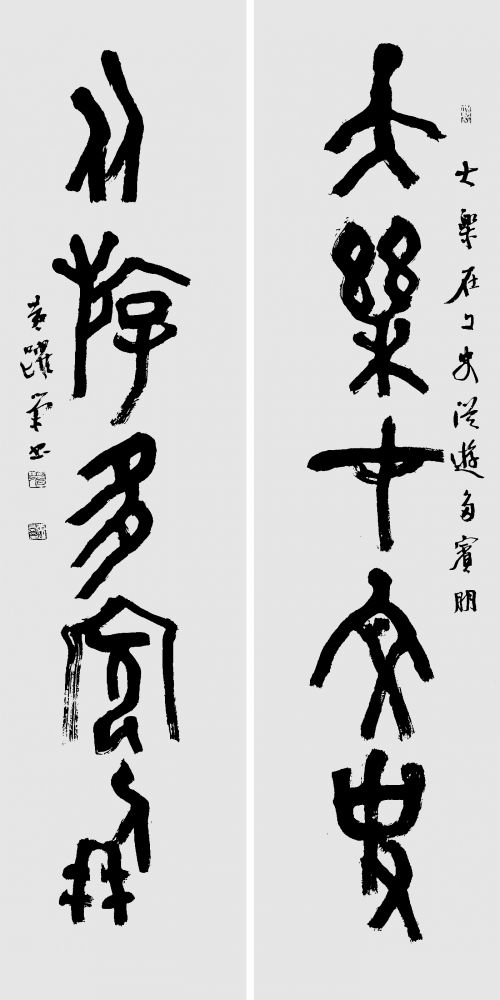 大樂在文史從遊多賓朋
大樂在文史
从斿多賓朋
黄躍